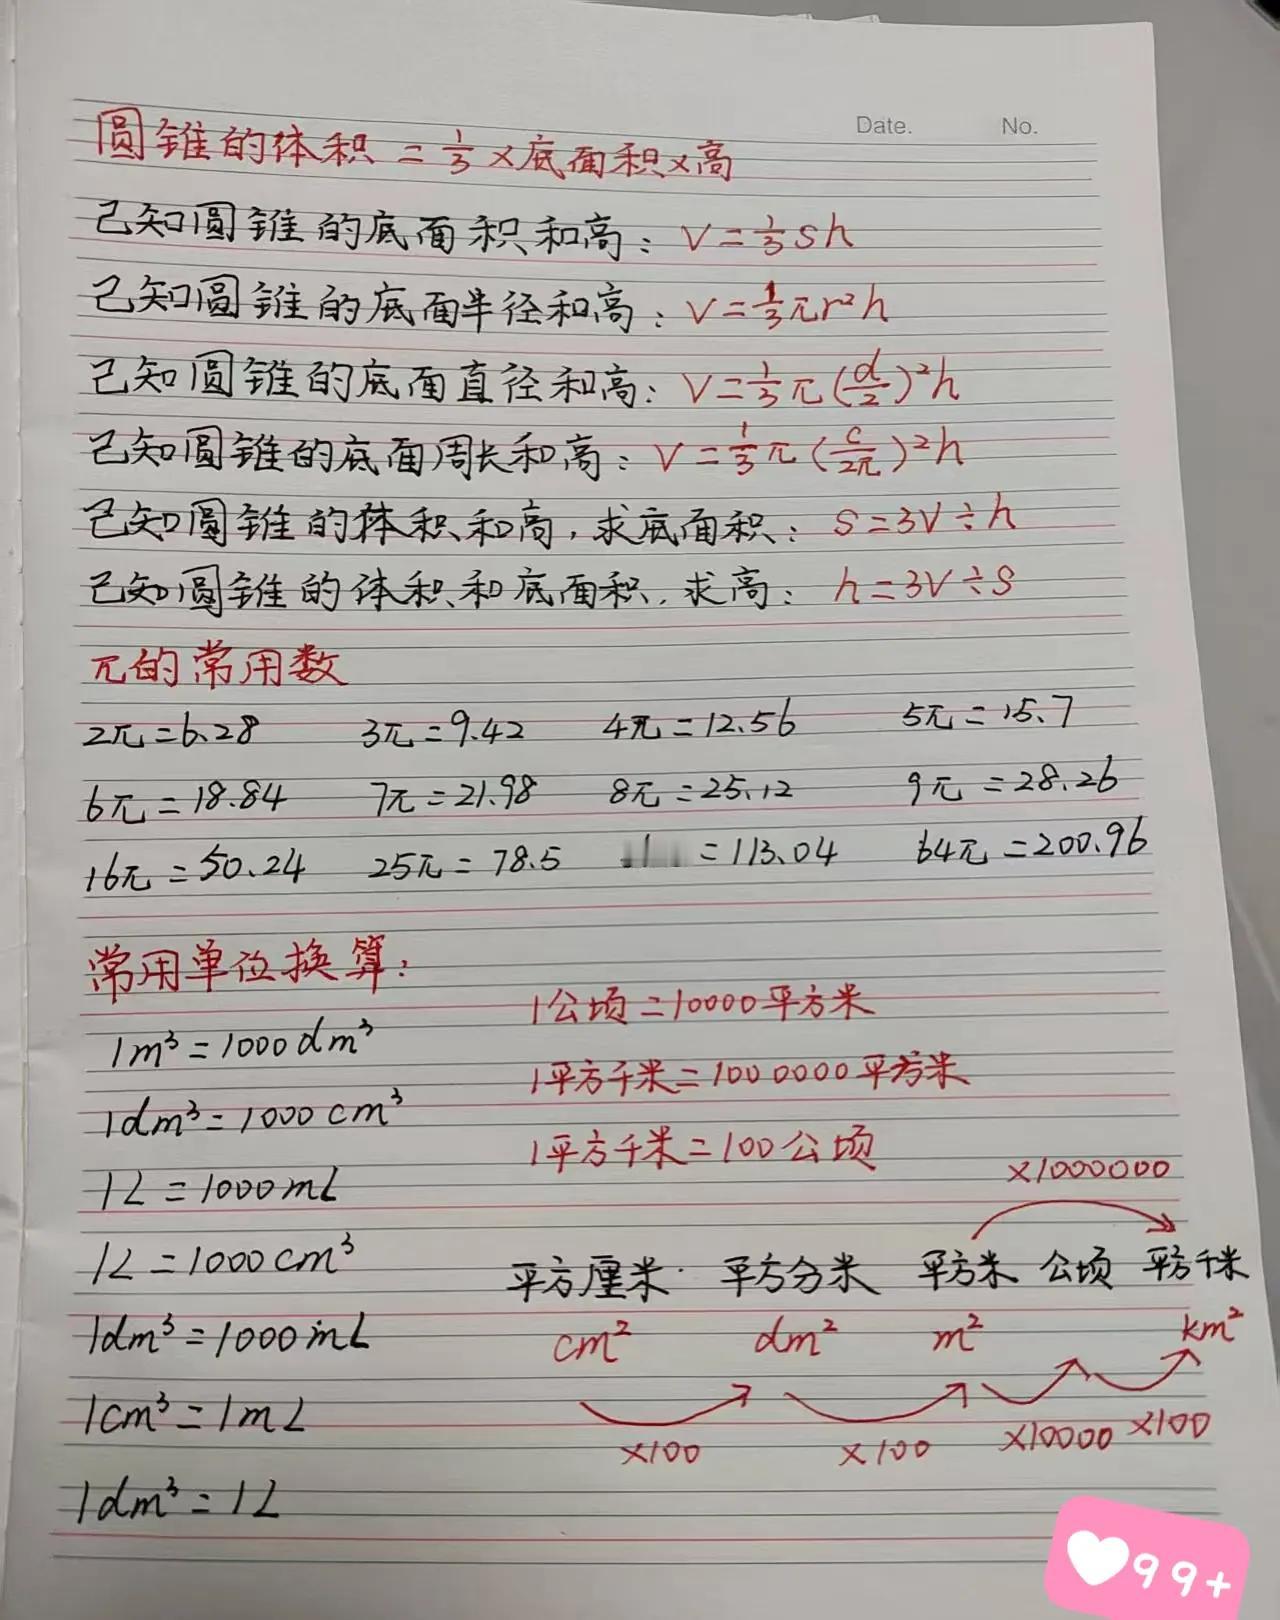 Date. No.
圆锥的体积=1/3×底面积×高
已知圆锥的底面积和高：V=1/3Sh
已知圆锥的底面半径和高：V=1/3πr²h
已知圆锥的底面直径和高：V=1/3π(d/2)²h
已知圆锥的底面周长和高：V=1/3π(c/2π)²h
已知圆锥的体积和高，求底面积：S=3V÷h
已知圆锥的体积和底面积，求高：h=3V÷S
π的常用数
2π=6.28 3π=9.42 4π=12.56 5π=15.7
6π=18.84 7π=21.98 8π=25.12 9π=28.26
16π=50.24 25π=78.5 =113.04 64π=200.96
常用单位换算：
1m³=1000dm³
1dm³=1000cm³
1L=1000mL
1L=1000cm³
1dm³=1000mL
1cm³=1mL
1dm³=1L
1公顷=10000平方米
1平方千米=1000000平方米
1平方千米=100公顷
×1000000
平方厘米 平方分米 平方米 公顷 平方千米
cm² dm² m² km²
×100 ×100 ×10000 ×100
99+